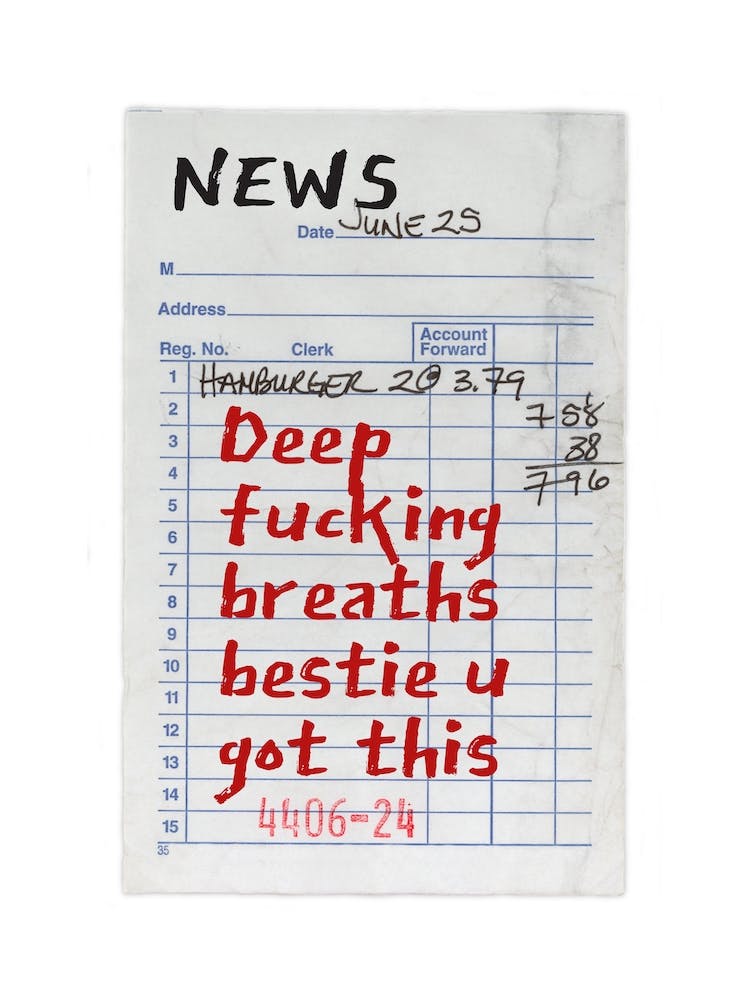 NEWS
Date JUNE 25
M
Address
Reg. No. Clerk Account Forward
1 HAMBURGER 2@ 3.79
2 7 58
3 38
4 7 96
Deep
5
fucking
6
7
breaths
8
9
bestie u
10
11
12
got this
13
14
4406-24
15
35